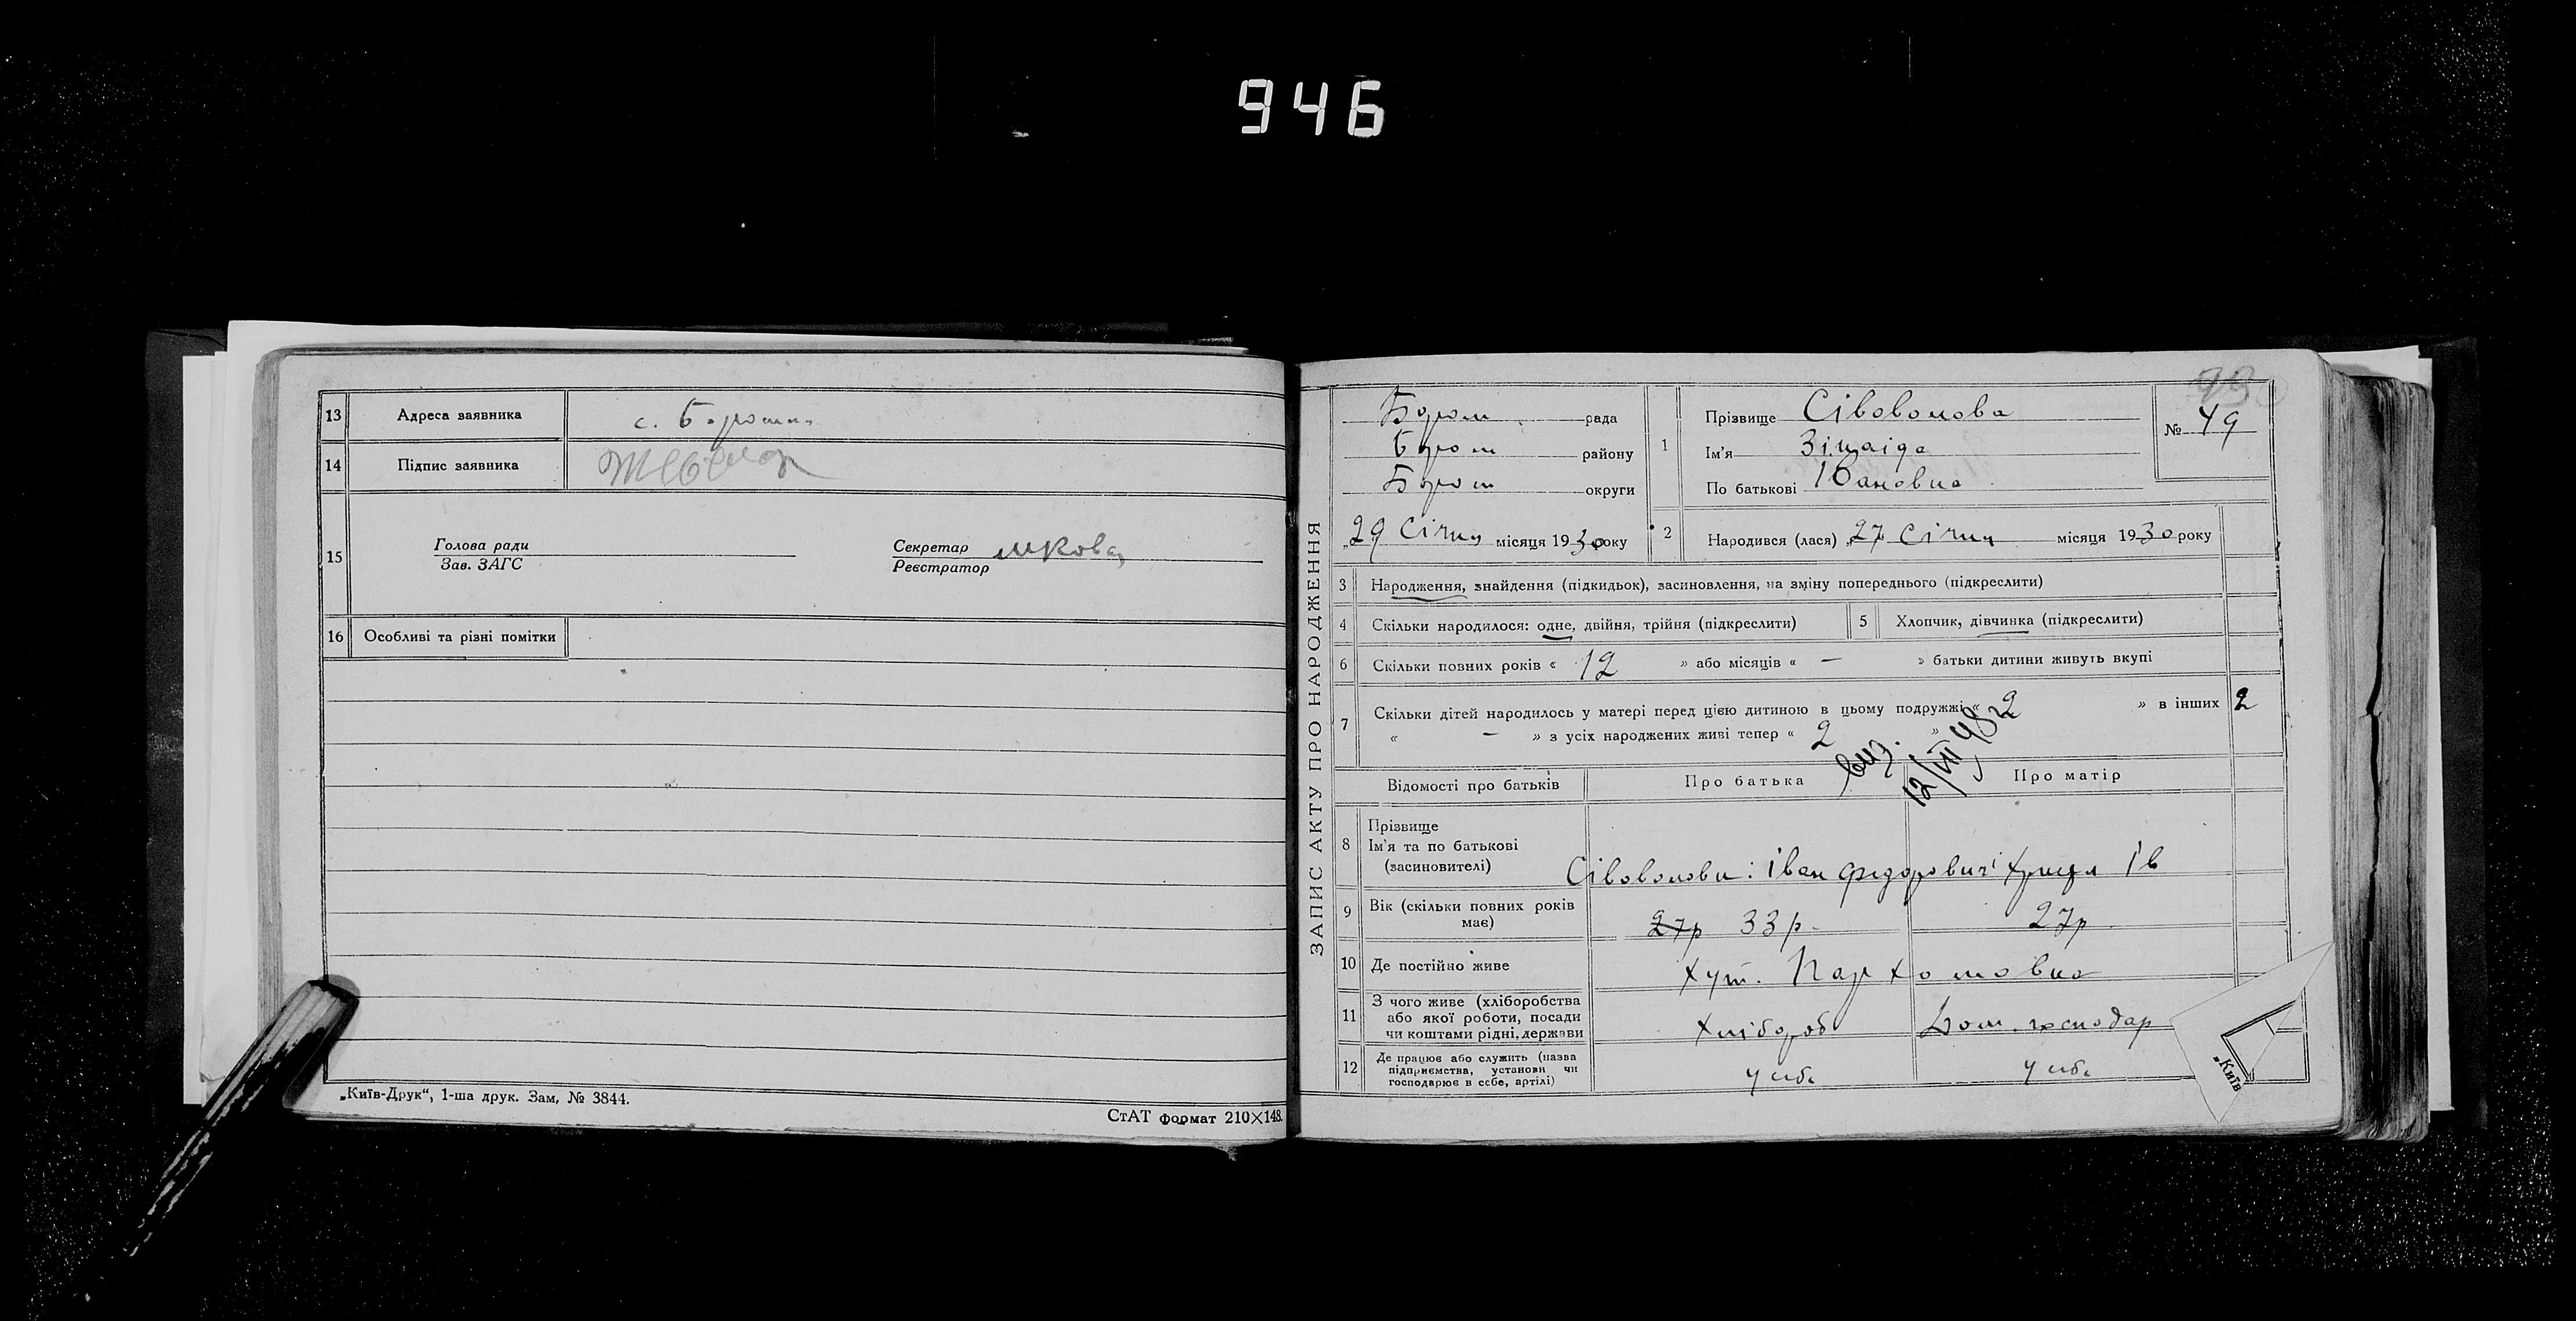 946
13 Адреса заявника с.
14 Підпис заявника
15 Голова ради
Зав. ЗАГС
Секретар
Реєстратор
16 Особливі та різні помітки
„Київ-Друк“, 1-ша друк. Зам. № 3844.
СтАТ формат 210×148.
ЗАПИС АКТУ ПРО НАРОДЖЕННЯ
Бором рада
Бором району
Бором округи
„29 Січня місяця 1930 року
1 Прізвище Сівоволова
Ім'я Зінаіда
По батькові Івановна
№ 49
2 Народився (лася) „27 Січня місяця 1930 року
3 Народження, знайдення (підкидьок), засиновлення, на зміну попереднього (підкреслити)
4 Скільки народилося: одне, двійня, трійня (підкреслити)
5 Хлопчик, дівчинка (підкреслити)
6 Скільки повних років « 12 » або місяців « — » батьки дитини живуть вкупі
7 Скільки дітей народилось у матері перед цією дитиною в цьому подружжі « 2 » в інших 2
« — » з усіх народжених живі тепер « 2 »
вид. 12/VII 48
Відомості про батьків Про батька Про матір
8 Прізвище
Ім'я та по батькові
(засиновителі)
Сівоволови: Іван Федорович і Ів
9 Вік (скільки повних років
має)
27р 33 р. 27р
10 Де постійно живе хут. Пархомовка
11 З чого живе (хліборобства
або якої роботи, посади
чи коштами рідні, держави
хлібороб Дом. господар
12 Де працює або служить (назва
підприємства, установи чи
господарює в себе, артілі)
у себе у себе
„Київ